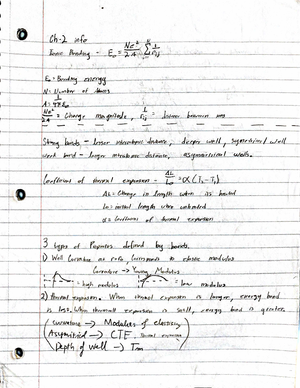 Ch-2 info
Ionic Bonding - E∞ = Ne²/2A Σ 1/rij
E∞ = Bonding energy
N = Number of atoms
A = 4πε₀
Ne²/2A = Charge magnitude, 1/rij = between
Strong bonds - lesser interatomic distance, deeper well, symmetrical well
weak bond - larger interatomic distance, asymmetrical wells.
Coefficient of thermal expansion - ΔL/L₀ = α(T₂-T₁)
ΔL = Change in length when is heated
L₀ = initial length when unheated
α = Coefficient of thermal expansion
3 types of Properties defined by bonds.
1) Well Curvature as corresponds to elastic modulus
Curvature → Young Modulus
= high modulus = low modulus
2) thermal expansion. When thermal expansion is larger, energy bond
is less. When thermal expansion is small, energy bond is greater.
(Curvature → Modulus of elasticity
Asymmetry → CTE thermal expansion
Depth of well → Tm)